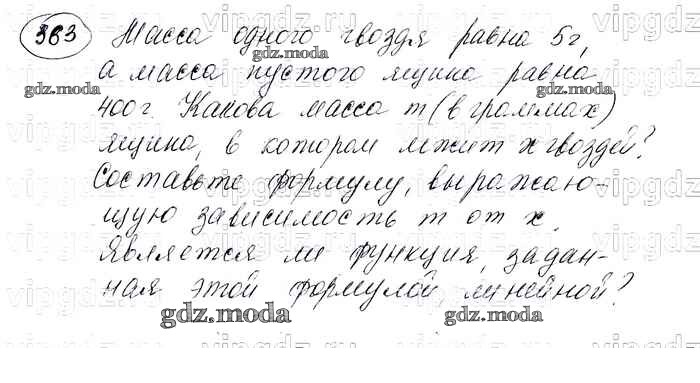 363 Масса одного гвоздя равна 5г,
а масса пустого ящика равна
400г. Какова масса m (в граммах)
ящика, в котором лежит x гвоздей?
Составьте формулу, выражаю-
щую зависимость m от x.
Является ли функция, задан-
ная этой формулой, линейной?
gdz.moda
gdz.moda
gdz.moda
gdz.moda
gdz.moda
gdz.moda